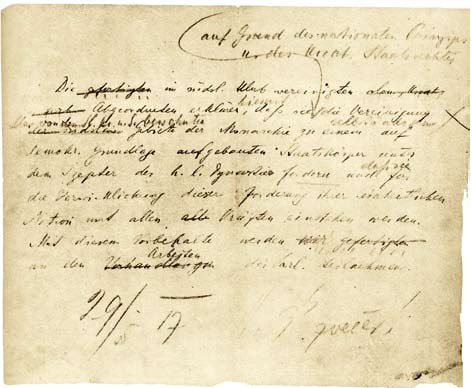 (auf Grund des nationalen Prinzips
u. des kroat. Staatsrechtes
Die gefertigten im südsl. Klub vereinigten
Abgeordneten erklären, daß sie die Vereinigung
von den S. K. u. S. bewohnten
Gebiete der Monarchie zu einem auf
demokr. Grundlage aufgebauten Staatskörper unter
dem Szepter der h. l. Dynastie fordern und für
die Verwirklichung dieser Forderung ihrer einheitlichen
Nation mit allen Kräften einstehen werden.
Mit diesem Vorbehalte werden wir
Arbeiten
an den Verhandlungen des Parl. teilnehmen.
29/V 17